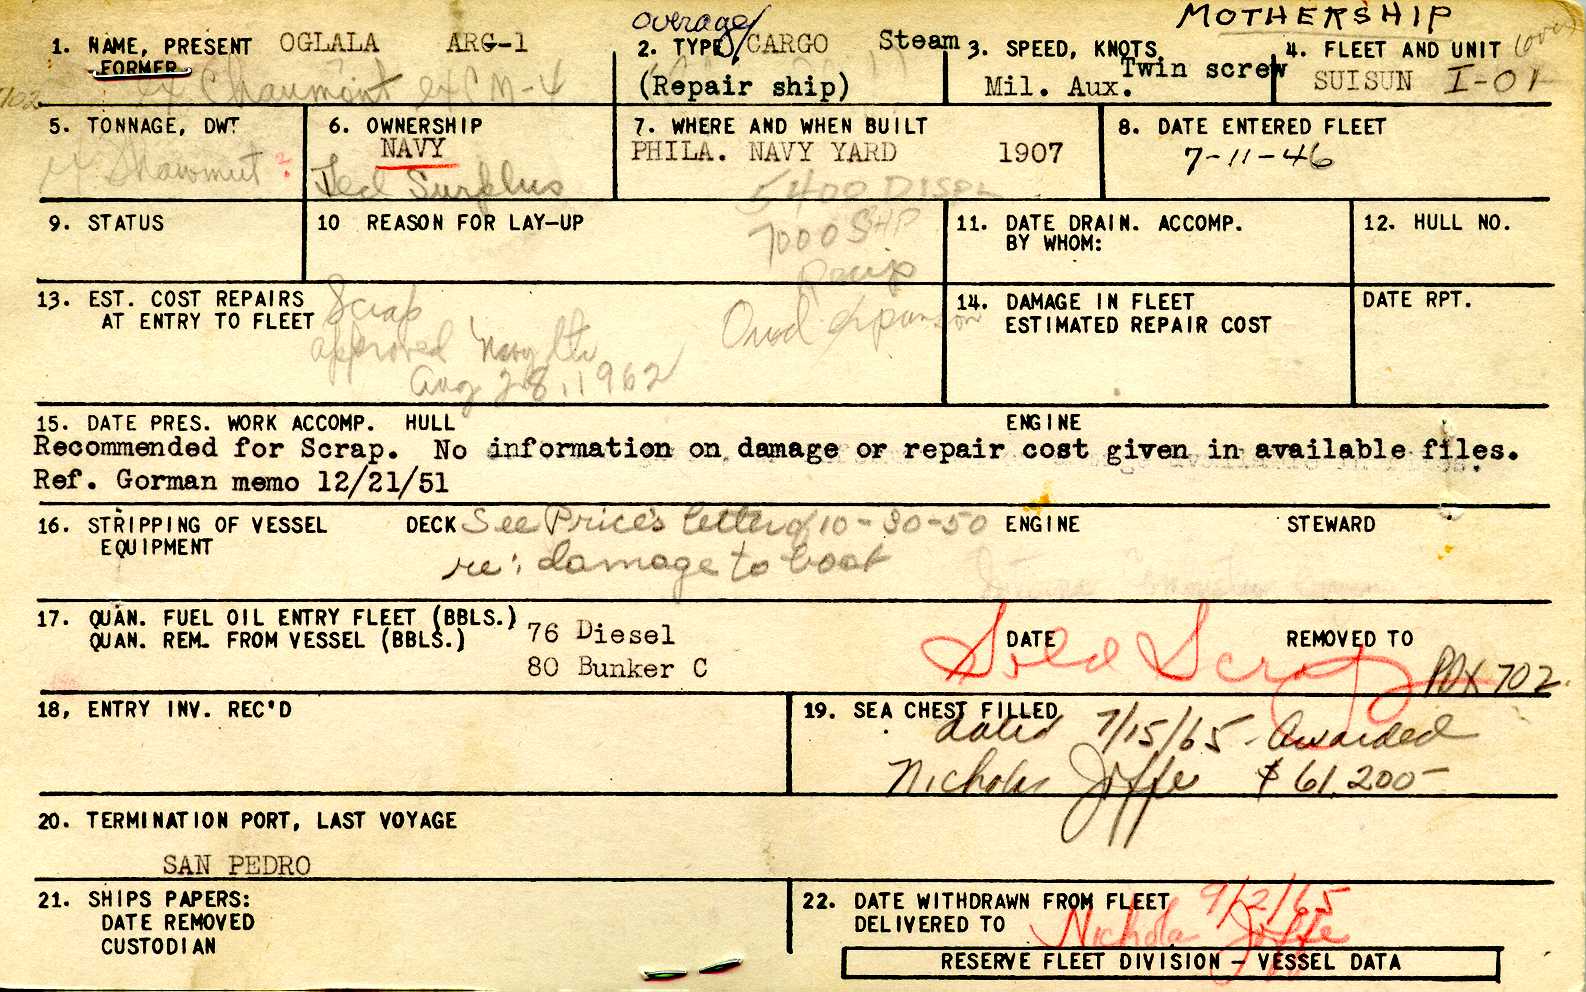 MOTHERSHIP
average/
1. NAME, PRESENT OGLALA ARG-1
FORMER
ex Chaumont ex CM-4
2. TYPE CARGO Steam
(Repair ship)
3. SPEED, KNOTS
Twin screw
Mil. Aux.
4. FLEET AND UNIT (over)
SUISUN I-01
5. TONNAGE, DWT
ex Shawmut ?
6. OWNERSHIP
NAVY
Fed Surplus
7. WHERE AND WHEN BUILT
PHILA. NAVY YARD 1907
5400 DISPL
7000 SHP
Recip
Quad expansion
8. DATE ENTERED FLEET
7-11-46
9. STATUS
10 REASON FOR LAY-UP
11. DATE DRAIN. ACCOMP.
BY WHOM:
12. HULL NO.
13. EST. COST REPAIRS
AT ENTRY TO FLEET
Scrap
approved Navy ltr
Aug 28, 1962
14. DAMAGE IN FLEET
ESTIMATED REPAIR COST
DATE RPT.
15. DATE PRES. WORK ACCOMP. HULL ENGINE
Recommended for Scrap. No information on damage or repair cost given in available files.
Ref. Gorman memo 12/21/51
16. STRIPPING OF VESSEL DECK ENGINE STEWARD
EQUIPMENT
See Price's letter of 10-30-50
re: damage to boat
17. QUAN. FUEL OIL ENTRY FLEET (BBLS.)
QUAN. REM. FROM VESSEL (BBLS.)
76 Diesel
80 Bunker C
DATE REMOVED TO
Sold Scrap
PDX 702
18, ENTRY INV. REC'D
19. SEA CHEST FILLED
dated 7/15/65 - Awarded
Nicholas Joffe $61,200-
20. TERMINATION PORT, LAST VOYAGE
SAN PEDRO
21. SHIPS PAPERS:
DATE REMOVED
CUSTODIAN
22. DATE WITHDRAWN FROM FLEET 9/2/65
DELIVERED TO Nichola Joffe
RESERVE FLEET DIVISION - VESSEL DATA